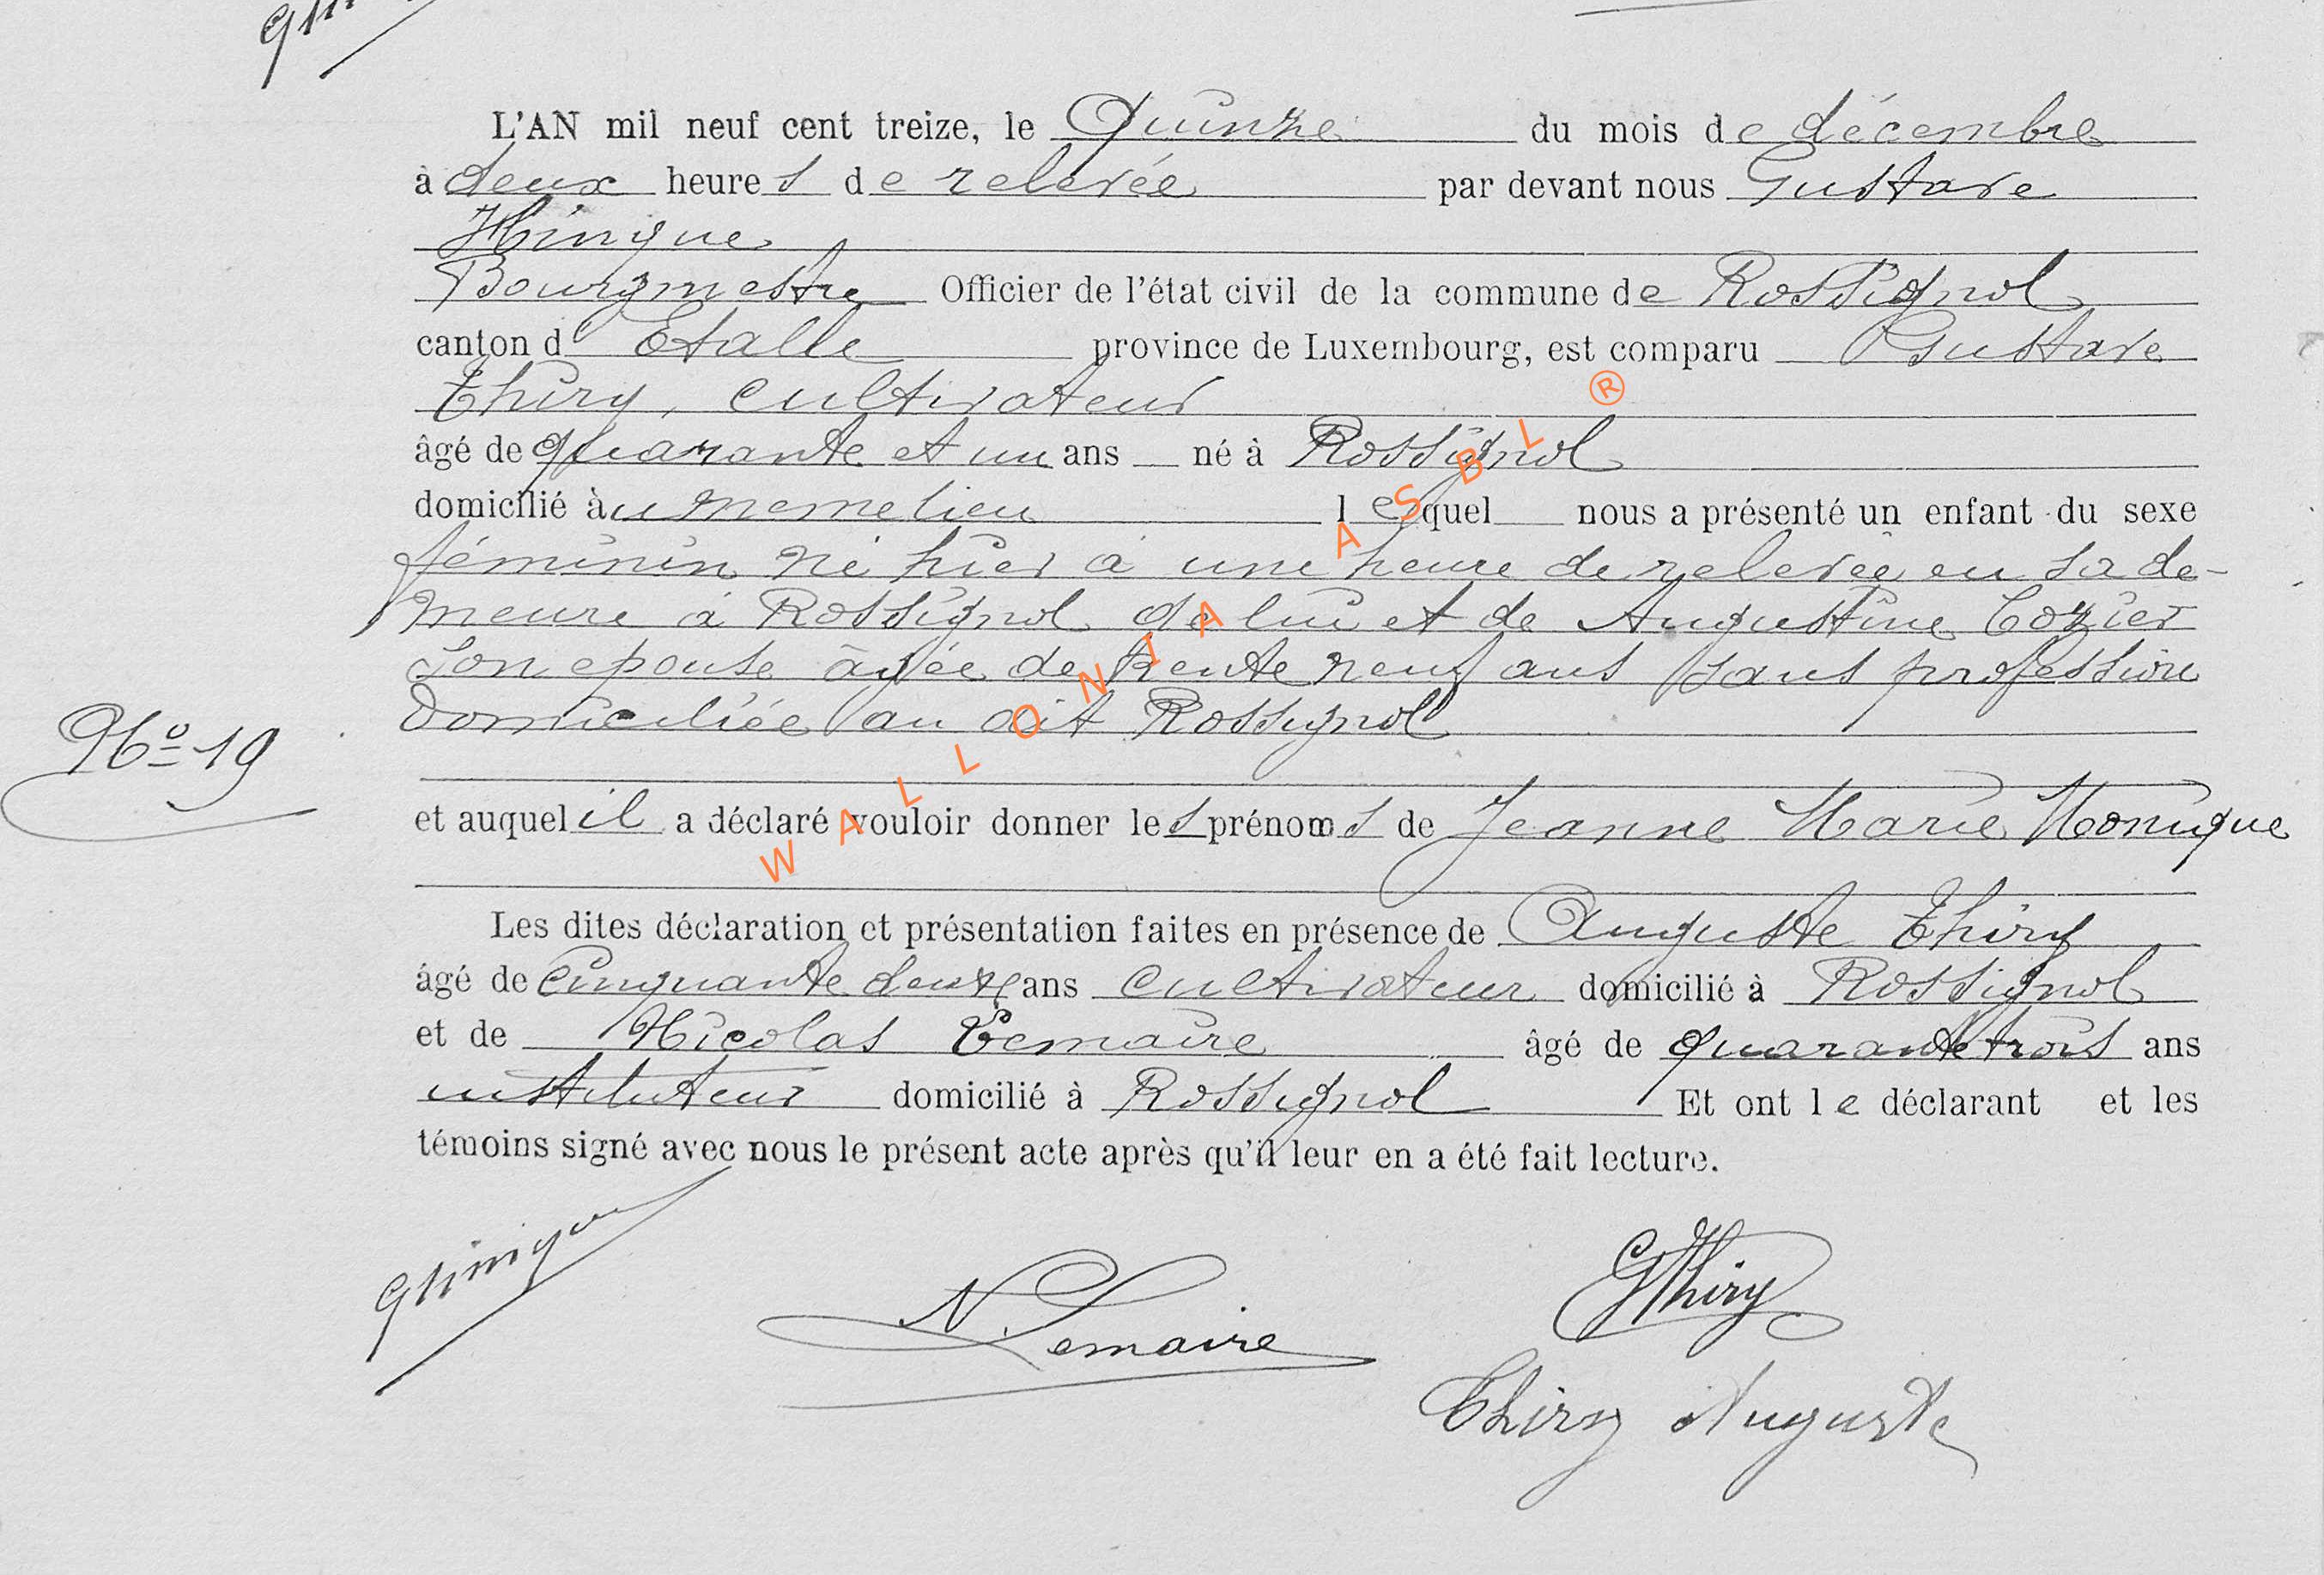 L'AN mil neuf cent treize, le Quinze du mois de décembre
à deux heures de relevée par devant nous Gustave
Hinque
Bourgmestre Officier de l'état civil de la commune de Rossignol
canton d'Etalle province de Luxembourg, est comparu Gustave
Thiry, cultivateur
âgé de quarante et un ans né à Rossignol
domicilié au meme lieu lequel nous a présenté un enfant du sexe
féminin né hier à une heure de relevée en sa de-
meure à Rossignol de lui et de Augustine Cozier
son epouse âgée de trente neuf ans sans profession
domiciliée au dit Rossignol
No 19
et auquel il a déclaré vouloir donner les prénoms de Jeanne Marie Monique
Les dites déclaration et présentation faites en présence de Auguste Thiry
âgé de cinquante deux ans cultivateur domicilié à Rossignol
et de Nicolas Lemaire âgé de quarante trois ans
instituteur domicilié à Rossignol Et ont le déclarant et les
témoins signé avec nous le présent acte après qu'il leur en a été fait lecture.
GHinque
N Lemaire
GThiry
Thiry Auguste
WALLONIA ASBL ®